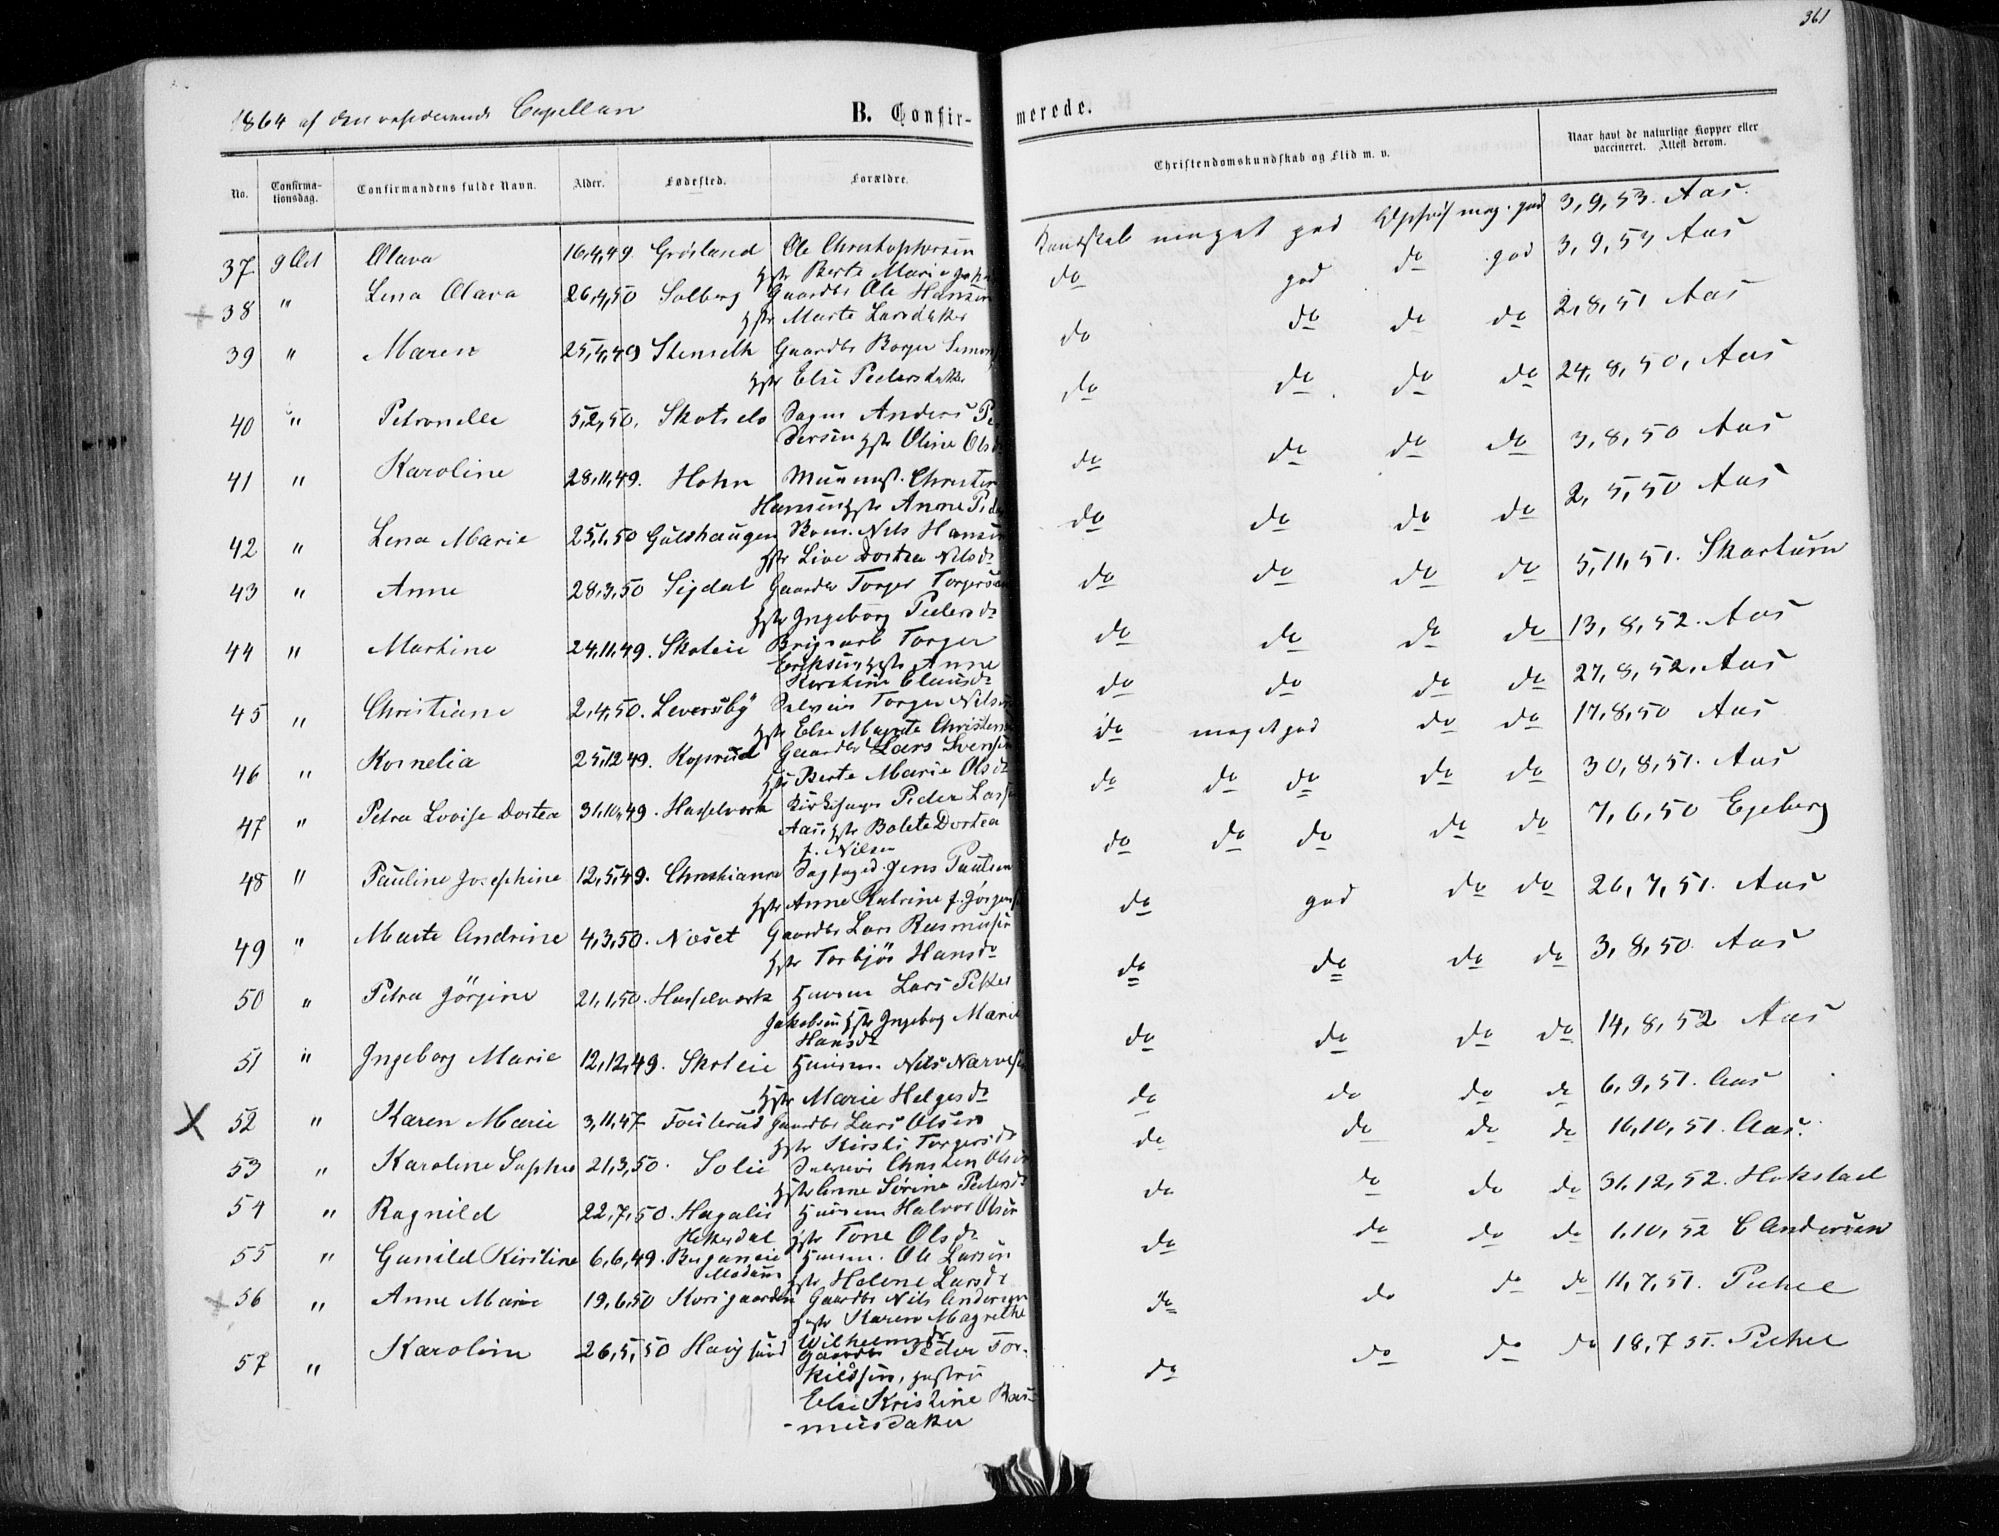 361
1864 af den residerende Capellan
B. Confir-
merede.
No.
Confirma-
tionsdag.
Confirmandens fulde Navn.
Alder.
Fødested.
Forældre.
Christendomskundskab og Flid m. v.
Naar havt de naturlige Kopper eller
vaccineret. Attest derom.
37 9 Oct Olava 16,4,49. Grøsland Ole Christophersen
Hstr Berte Marie
Kundskab meget god Opførs meg. god 3,9,53. Aas.
38 " Lena Olava 26,4,50 Solberg Gaardbr Ole Hansen
Hstr Marte Larsdatter
do god do god 3,9,53 Aas
39 " Maren 25,4,49 Stenseth Gaardbr Borger Simons
Hstr Else Pedersdatter
do do do do 2,8,51 Aas
40 " Petronelle 5,2,50. Skotselv Anders Pe
dersen Hstr Oline Olsd
do do do do 24,8,50, Aas
41 " Karoline 28,11,49. Hohn Murmest. Christen
Hansen Hstr Anne Ped
do do do do 3,8,50 Aas
42 " Lena Marie 25,1,50 Guldhaugen Nils Hansen
Hstr Live Dortea Nilsdr
do do do do 2,5,50 Aas
43 " Anne 28,3,50 Sigdal Gaardbr Torger Torgersen
Hstr Ingeborg Pedersdr
do do do do 5,11,51. Skartum
44 " Martine 24,11,49. Skoteie Brugsarb Torger
Eriksen Hstr Anne
Kirstine Clausdr
do do do do 13,8,52. Aas
45 " Christiane 2,4,50. Leversby Selveier Torger Nilsen
Hstr Else Magrete Christens
do do do do 27,8,52. Aas
46 " Kornelia 25,12,49. Koprud Gaardbr Lars Svensen
Hstr Berte Marie Olsdr
do meget god do do 17,8,50 Aas
47 " Petra Lovise Dortea 31,10,49. Hasselverk Kirkesanger Peder Lars
Aas Hstr Bolete Dortea
f. Nilsen
do do do do do 30,8,51. Aas
48 " Pauline Josephine 12,5,49. Christiania Sagfoged. Jens Paulsen
Hstr Anne Katrine f. Jørgens
do do do do do 7,6,50 Egeberg
49 " Marte Andrine 4,3,50. Nøset Gaardbr Lars Rasmusen
Hstr Torbjør Hansdr
do god do do 26,7,51. Aas
50 " Petra Jörgine 21,1,50. Hasselverk Huusm Lars Peter
Jakobsen Hstr Ingeborg Marie
Hansdr
do do do do 3,8,50. Aas
51 " Ingeborg Marie 12,12,49. Skoteie Huusm. Nils Narvesen
Hstr Marie Helgesdr
do do do do 14,8,52 Aas
X 52 " Karen Marie 3,11,47 Foslerud Gaardbr Lars Olsen
Hstr Kirsti Torgersdr
do do do do 6,9,51. Aas
53 " Karoline Sophie 21,3,50. Solie Selveier Christen Olsen
Hstr Anne Sørine Pedersdr
do do do do 16,10,51. Aas.
54 " Ragnild 22,7,50. Hagalie Huusm Halvor Olsen
Hittersdal Hstr Tone Olsdr
do do do do 31,12,52. Hokstad
55 " Gunild Kirstine 6,6,49. Huusm. Ole Larsen
Modum Hstr Helene Larsdr
do do do do 1,10,52 C Andersen
56 " Anne Marie 19,6,50 Korsgaarden Gaardbr Nils Andersen
Hstr Karen Magrethe
Wilhelmsdr
do do do do 11,7,51. Pickel
57 " Karoline 26,5,50 Haugsund Gaardbr Peder Tor-
kildsen, hustru
Else Kristine Ras-
-musdatter
do do do do 18,7 51. Pickel